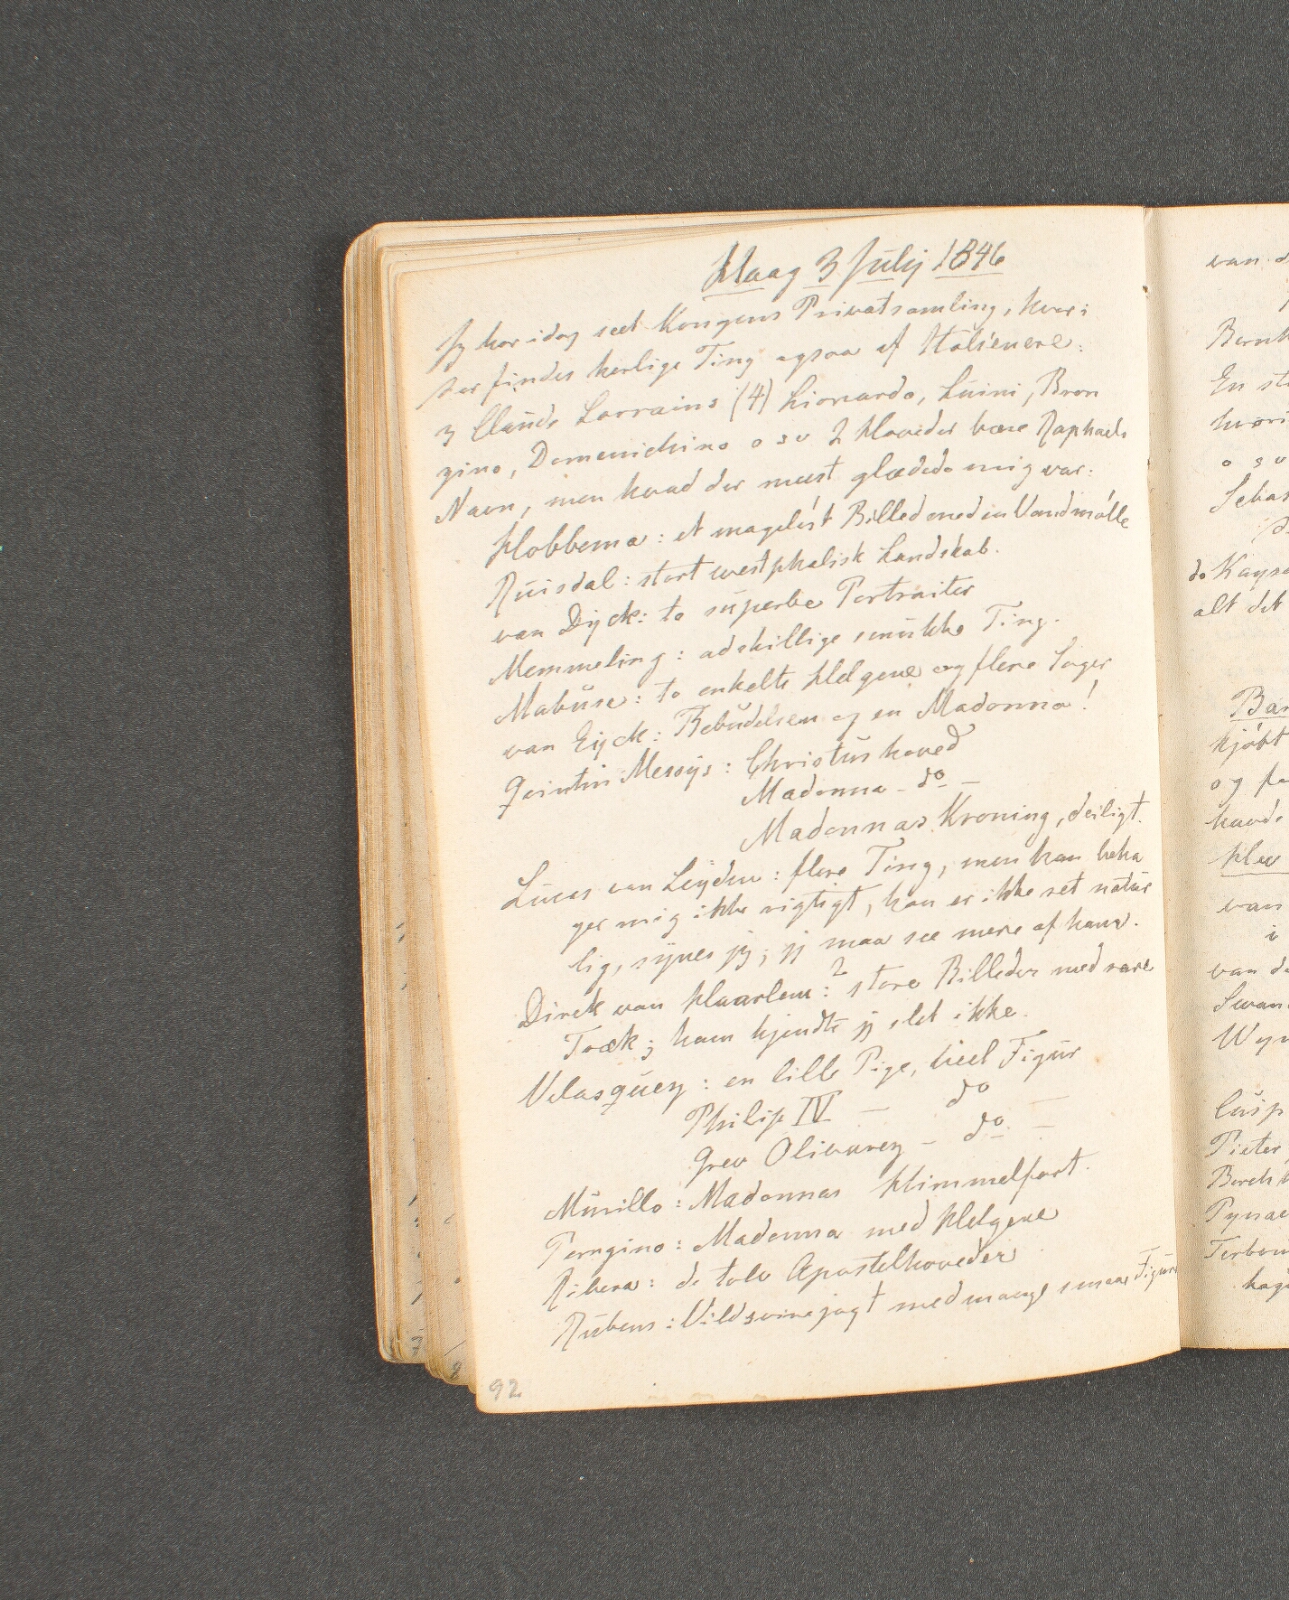 Haag 3 July 1846
Jeg har idag seet Kongens Privatsamling, hvori
der findes herlige Ting ogsaa af Italienere:
3 Claude Lorrains (4) Lionardo, Luini, Bron
zino, Domenichino o s v 2 Hoveder bære Raphaels
Navn, men hvad der meest glædede mig var:
Hobbema: et mageløst Billed med en Vandmølle
Ruisdal: stort westphalisk Landskab.
van Dyck: to superbe Portraiter
Memmeling: adskillige smukke Ting.
Mabuse: to enkelte Helgene og flere Sager
van Eyck: Bebudelsen og en Madonna!
Qvintin Messys: Christushoved
Madonna - do -
Madonnas Kroning, deiligt.
Lucas van Leyden: flere Ting, men han beha
ger mig ikke rigtigt, han er ikke ret natur
lig, synes jeg; jeg maa see mere af ham.
Dirck van Haarlem: 2 store Billeder med rare
Træk; ham kjendte jeg slet ikke.
Velasquez: en lille Pige, heel Figur
Philip IV - do -
Grev Olivarez - do -
Murillo: Madonnas Himmelfart.
Perugino: Madonna med Helgene
Ribera: de tolv Apostelhoveder
Rubens: Vildsvinejagt med mange smaae Figur
92
van d
Bernh
En st
hvori
o s v
Sebas
de Kayse
alt det
kjøbt
og fo
havde
van
i
van de
Swan
Wyn
Cuyp
Pieter
Berch
Pynac
Terbou